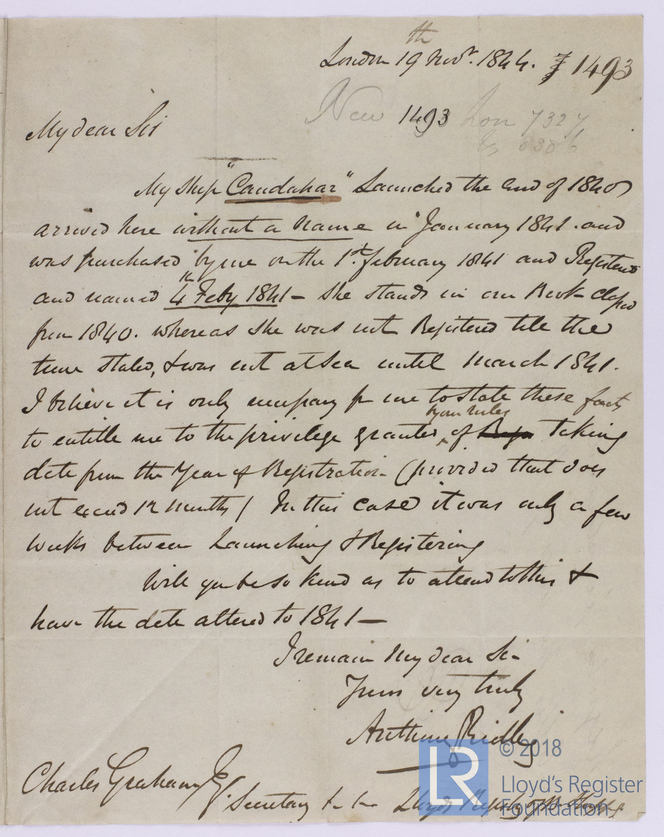 London 19th Novr. 1844. 1493
New 1493 Lon 7327
My dear Sir
My Ship "Candahar" Launched the end of 1840,
arrived here without a Name in January 1841. and
was purchased by me on the 1st. February 1841 and Registered
and named 4th Feby 1841 - She stands in our Book classed
from 1840. whereas she was not Registered till the
time stated, & was not at Sea until March 1841.
I believe it is only necessary for me to state these facts
by our rules
to entitle me to the privilege granted, of taking
date from the Year of Registration (provided that does
not exceed 12 months) In this case it was only a few
weeks between Launching & Registering
Will you be so kind as to attend to this &
have the date altered to 1841 -
I remain My dear Sir
Yours very truly
Anthony Ridley
Charles Graham Esq
Secretary to the Lloyds Register of Shipping
LR © 2018
Lloyd's Register
Foundation